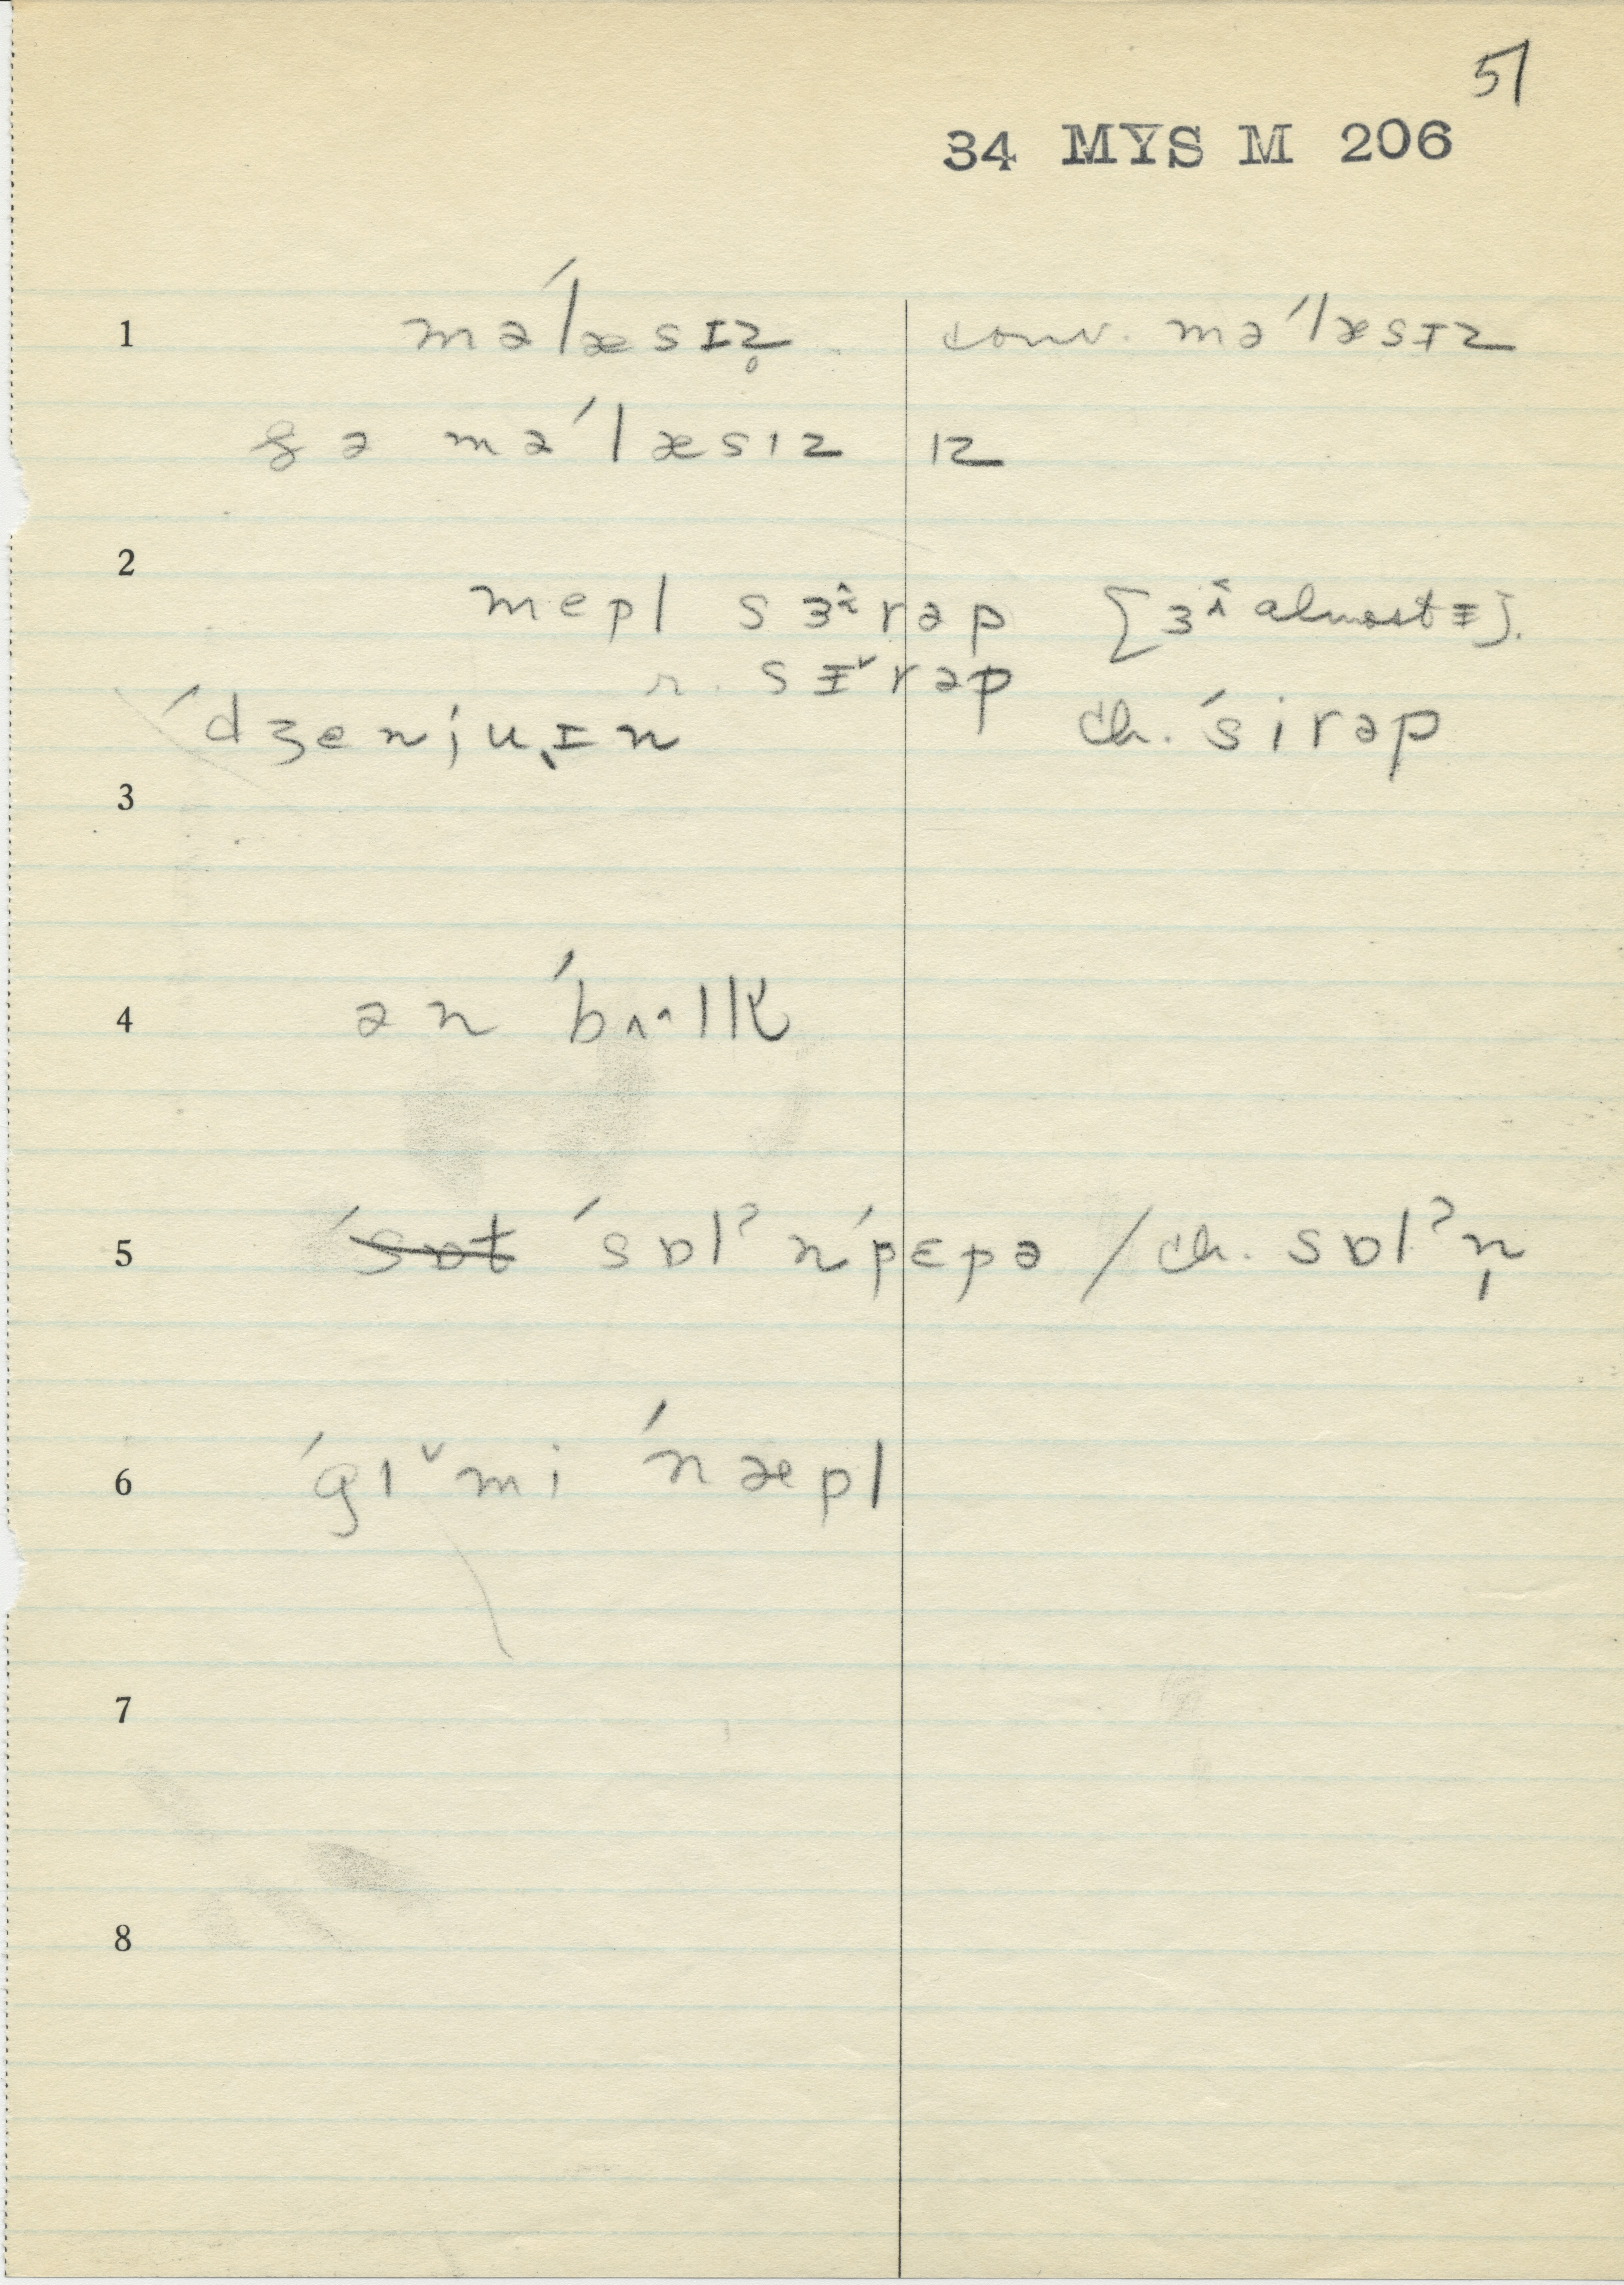 51
34 MYS M 206
1 məˈlæsɪz̥ conv. məˈlæsɪz
ðə məˈlæsɪz ɪz
2 mepl sɜ˞^rəp [ɜ^ almost ᵻ].
r. sᵻ˅rəp
ˈdʒenjuˌɪn ch. ˈsirəp
3
4 ən ˈbʌ^lk
5 ˈsɒt ˈsɒlˀnˈpɛpə / ch. sɒlˀn̩
6 ˈgɪ˅mi ˈnæpl
7
8